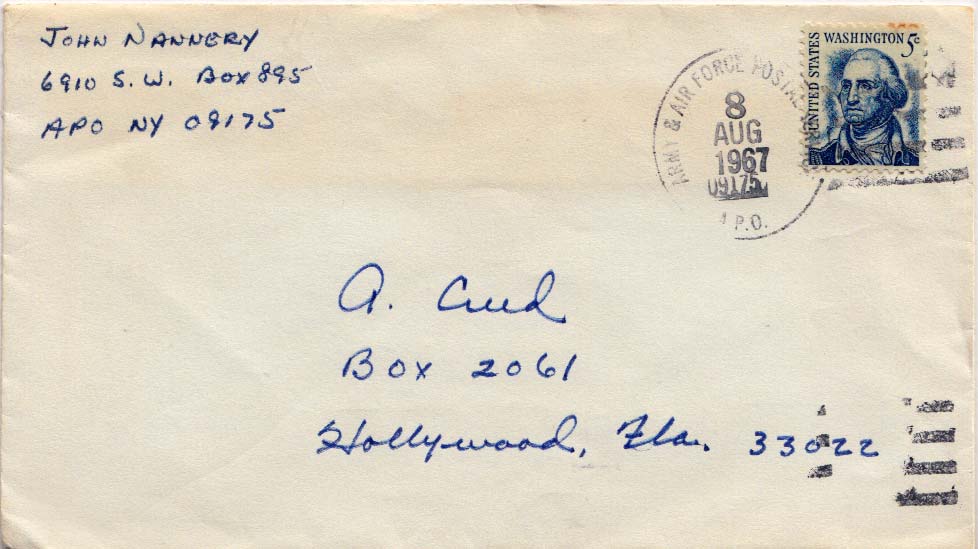 JOHN NANNERY
6910 S.W. BOX 895
APO NY 09175
UNITED STATES
WASHINGTON 5c
ARMY & AIR FORCE POSTAL
8
AUG
1967
09175
A.P.O.
A. Creed
Box 2061
Hollywood, Fla. 33022